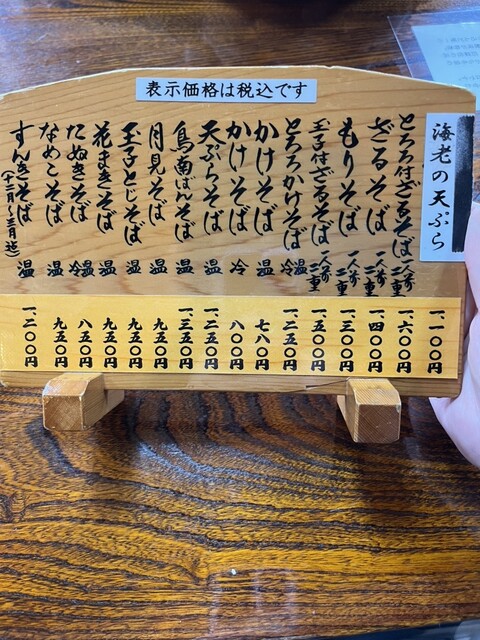 表示価格は税込です
海老の天ぷら 一、一〇〇円
とろろ付ざるそば 一人前二重 一、六〇〇円
ざるそば 一人前二重 一、四〇〇円
もりそば 一人前二重 一、三〇〇円
玉子付ざるそば 一人前二重 一、五〇〇円
とろろかけそば 冷温 一、二五〇円
かけそば 温 七八〇円
かけそば 冷 八〇〇円
天ぷらそば 温 一、二五〇円
鳥南ばんそば 温 一、三五〇円
月見そば 温 九五〇円
玉子とじそば 温 九五〇円
花まきそば 温 九五〇円
たぬきそば 冷温 八五〇円
なめこそば 温 九五〇円
すんきそば 温 一、二〇〇円
(十二月〜三月迄)